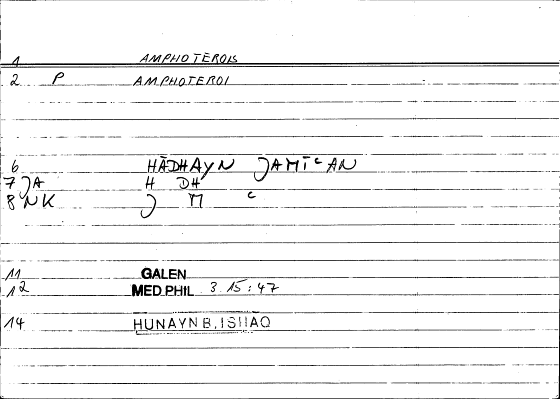 1 AMPHOTĒROIS
2 P AMPHOTEROI
6 HĀDHAYN JAMĪʿAN
7 JA H DH
8 NK J M ʿ
11 GALEN
12 MED.PHIL 3.15:47
14 HUNAYN B. ISHAQ